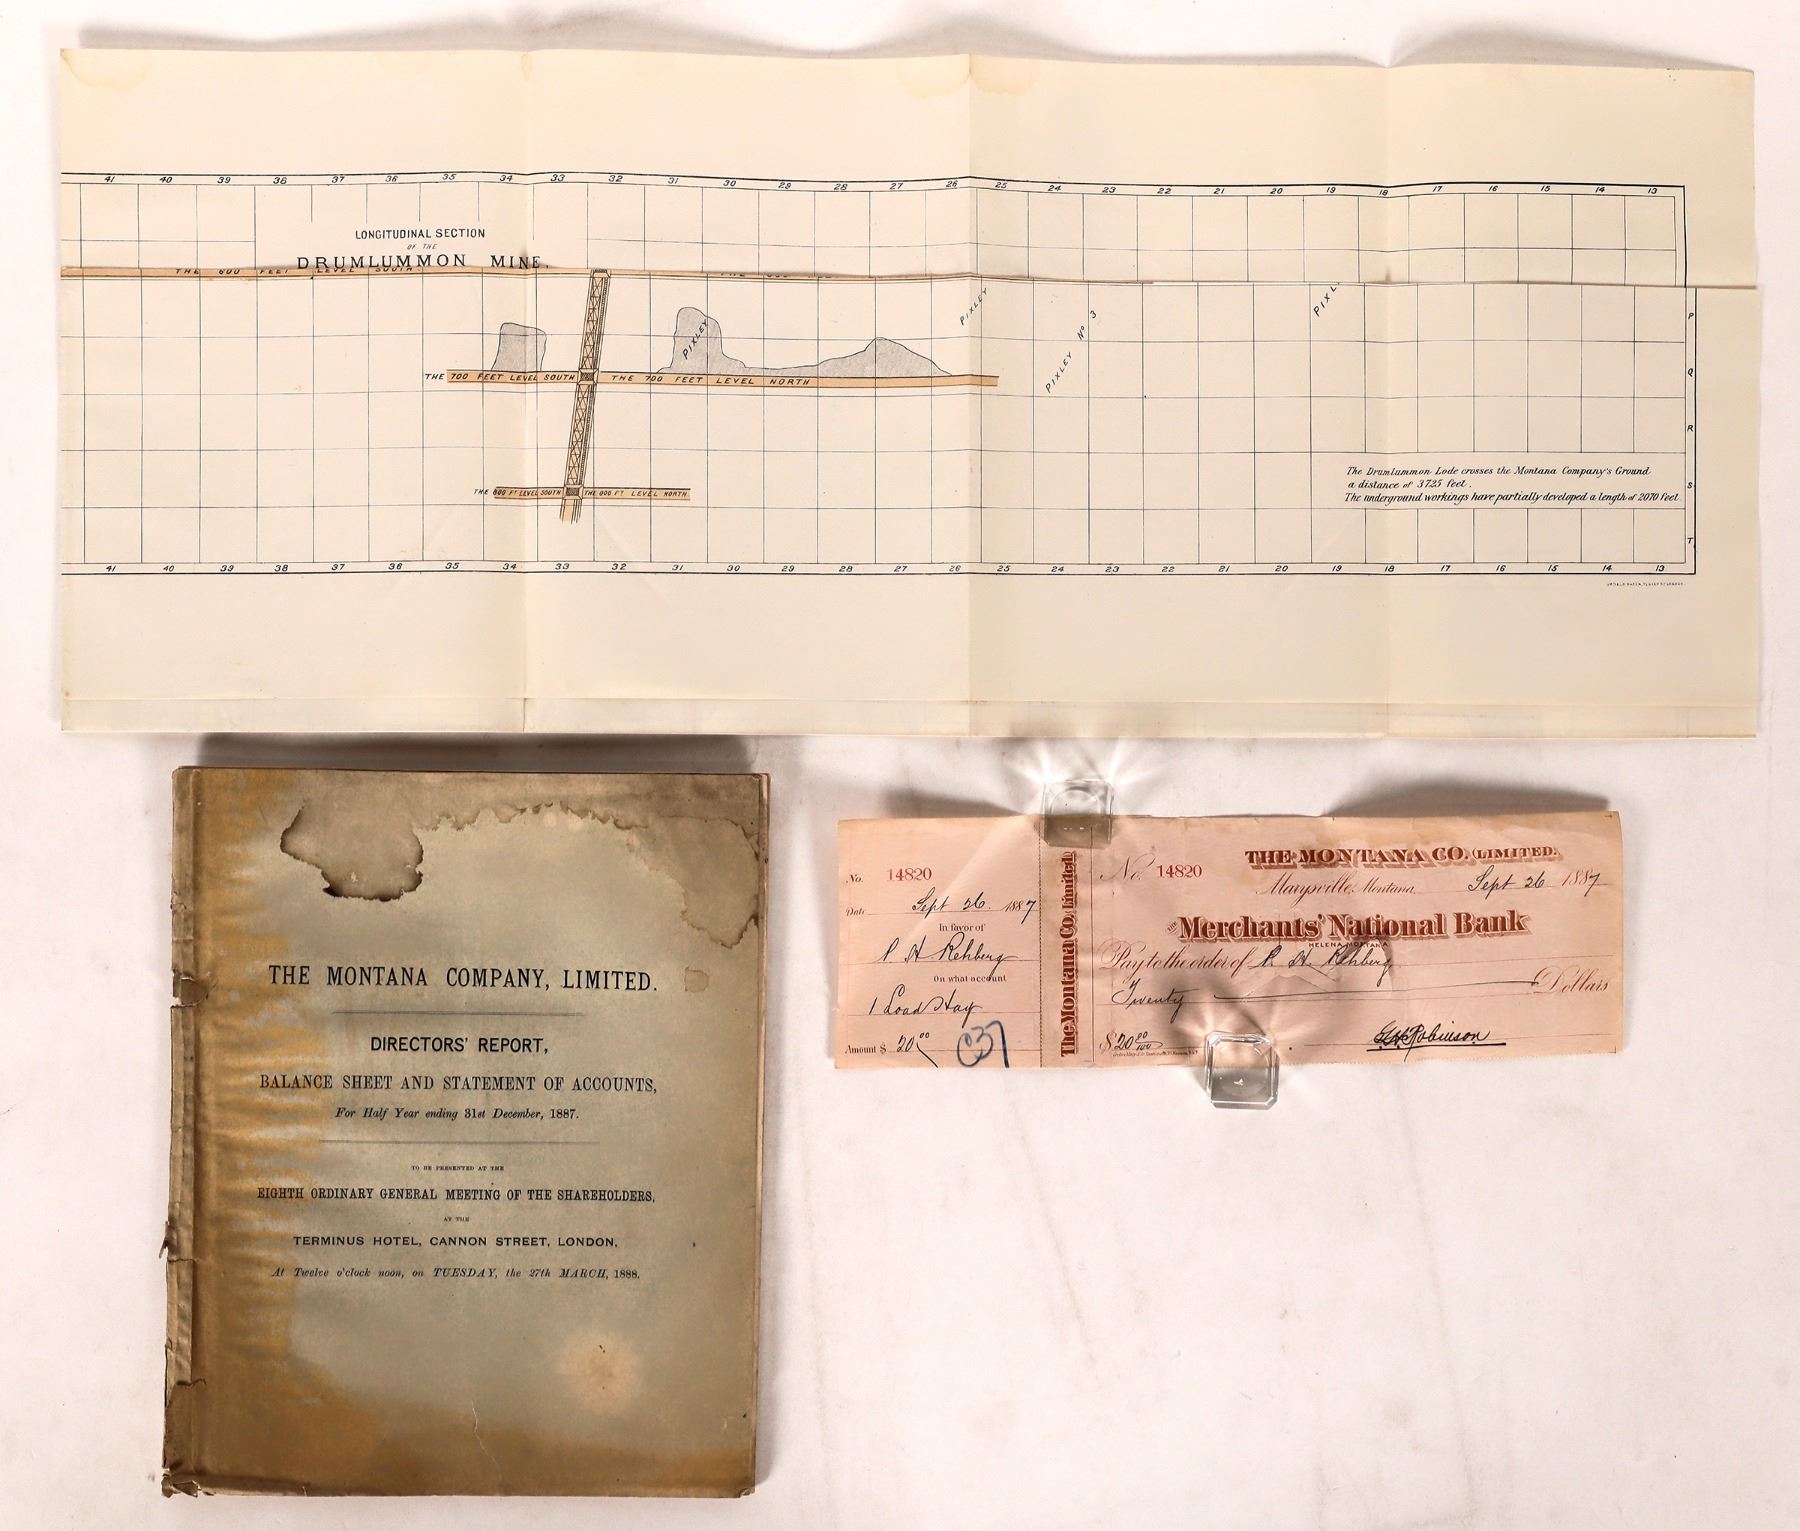 41 40 39 38 37 36 35 34 33 32 31 30 29 28 27 26 25 24 23 22 21 20 19 18 17 16 15 14 13
LONGITUDINAL SECTION
OF THE
DRUMLUMMON MINE.
THE 600 FEET LEVEL SOUTH.
PIXLEY
PIXLEY
PIXLEY No 3
PIXL
P
Q
R
S
T
THE 700 FEET LEVEL SOUTH
THE 700 FEET LEVEL NORTH
THE 800 FT LEVEL SOUTH
THE 800 FT LEVEL NORTH
The Drumlummon Lode crosses the Montana Company's Ground
a distance of 3725 feet.
The underground workings have partially developed a length of 2070 feet.
41 40 39 38 37 36 35 34 33 32 31 30 29 28 27 26 25 24 23 22 21 20 19 18 17 16 15 14 13
THE MONTANA COMPANY, LIMITED.
DIRECTORS' REPORT,
BALANCE SHEET AND STATEMENT OF ACCOUNTS,
For Half Year ending 31st December, 1887.
TO BE PRESENTED AT THE
EIGHTH ORDINARY GENERAL MEETING OF THE SHAREHOLDERS,
AT THE
TERMINUS HOTEL, CANNON STREET, LONDON,
At Twelve o'clock noon, on TUESDAY, the 27th MARCH, 1888.
No. 14820
Date Sept 26. 1887
In favor of
P H Rehberg
On what account
1 Load Hay
Amount $ 20.00
C37
The Montana Co. Limited.
No. 14820
THE MONTANA CO. (LIMITED.)
Marysville, Montana, Sept 26 1887
THE Merchants' National Bank
HELENA MONTANA
Pay to the order of P. H. Rehberg
Twenty Dollars
$20 00/100
G H Robinson